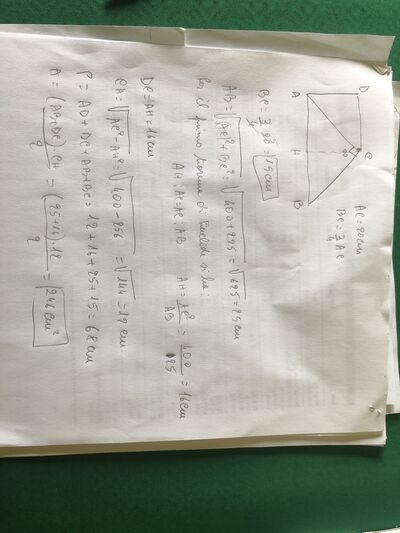 D C
90
A H B
AC = 20cm
BC = 3/4 AC
BC = 3/4 20 = 15cm
AB = √AC²+BC² = √400+225 = √625 = 25 cm
Per il primo teorema di Euclide si ha:
AH : AC = AC : AB AH = AC²/AB = 400/25 = 16cm
DC = AH = 16cm
CH = √AC²-AH² = √400-256 = √144 = 12 cm
P = AD + DC + AB + BC = 12 + 16 + 25 + 15 = 68 cm
A = (AB+DC)·CH/2 = (25+16)·12/2 = 246 cm²